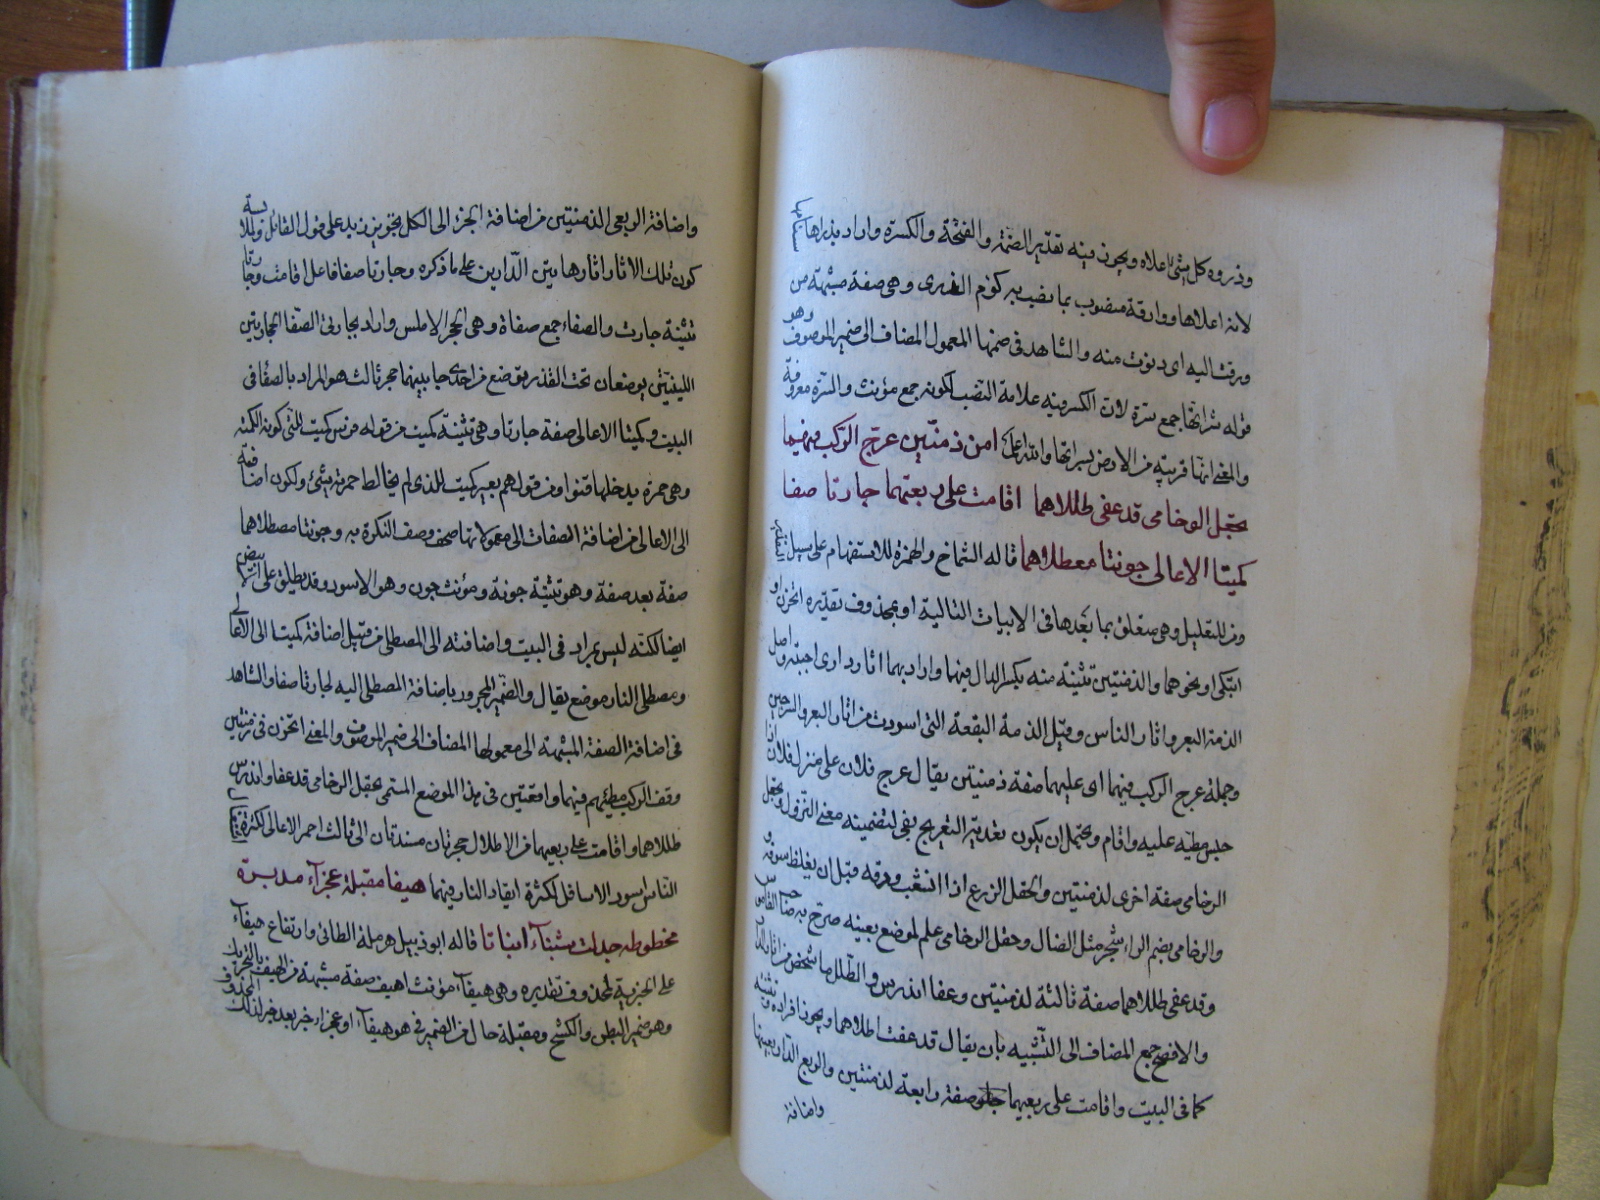 وذروه كل شئ اعلاه ويجوز فيه تقدير الضمة والفتحة والكسرة واراد بذراها سنامها
لانه اعلاها ووارقة منصوب بما نصب به كوم الذرى وهى صفة مشبهة من
ورقت اليه اى دنوت منه والشاهد فى ضمها المعمول المضاف الى ضمير الموصوف وهو
قوله سراتها جمع سرة لان الكسر فيه علامة النصب لكونه جمع مؤنث والسرة معروفة
والمعنى انها قريبة من الارض بسراتها والله اعلم امن دمنتين عرج الركب فيهما
بحقل الرخامى قد عفى طللاهما اقامت على ربعيهما جارتا صفا
كميتا الاعالى جونتا مصطلاهما قاله الشماخ والهمزة للاستفهام على سبيل التقرير
ومن للتعليل وهى متعلق بما بعدها فى الابيات التالية او بمحذوف تقديره اتحزن او
اتبكى او نحوهما والدمنتين تثنية دمنة بكسر الدال فيهما واراد بهما اثار دارى احبته واصل
الدمنة البعر واثار الناس وقيل الدمنة البقعة التى اسودت من اثار البعر والسرجين
وجملة عرج الركب فيهما اى عليهما صفة دمنتين يقال عرج فلان على منزل فلان اذا
حبس مطيه عليه واقام ويحتمل ان يكون تعدية التعريج بفى لتضمينه معنى النزول وبحقل
الرخامى صفة اخرى لدمنتين والحقل الزرع اذا انشعب ورقه قبل ان يغلظ سوقه و
والرخامى بضم الراء شجر مثل الضال وحقل الرخامى علم لموضع بعينه صرح به صاحب القاموس
وقد عفى طللاهما صفة ثالثة لدمنتين وعفا اندرس والطلل ما شخص من اثار الدار
والافصح جمع المضاف الى التثنيه بان يقال قد عفت اطلالهما ويجوز افراده وتثنيته
كما فى البيت واقامت على ربعيهما صفة رابعة لدمنتين والربع الدار بعينها
واضافة
واضافة الربعى الدمنتين من اضافة الجزء الى الكل بتجويز زيد على قول القائل وللملابسة
كون تلك الاثار اثارها بين الدارين على ما ذكره وجارتا صفا فاعل اقامت وجارتا
تثنية جارت والصفاء جمع صفاة وهى الحجر الاملس واراد بجارتى الصفا الحجارتين
اللتين يوضعان تحت القدر يوضع من احدى جانبيهما حجر ثالث هو المراد بالصفا فى
البيت وكميتا الاعالى صفة جارتا وهى تثنية كميت من قوله فرس كميت للتى كونه الكمتة
وهى حمرة يدخلها قنوا ومن قولهم بعير كميت للذى لم يخالط حمرته شئ ولكون اضافته
الى الاعالى من اضافة الصفات الى معمولاتها صح وصف النكرة به وجونتا مصطلاهما
صفة بعد صفة وهو تثنية جونة ومؤنث جون وهو الاسود وقد يطلق على الابيض
ايضا لكنه ليس بمراد فى البيت واضافته الى المصطلى من قبيل اضافة كميتا الى الاعالى
ومصطلى النار موضع يقال والضمير المجرور باضافة المصطلى اليه لجارتا صفا والشاهد
فى اضافة الصفة المشبهة الى معمولها المضاف الى ضمير الموصوف والمعنى اتحزن فى دمنتين
وقف الركب مطيهم فيهما واقعتين فى هذا الموضع المسمى بحقل الرخامى قد عفا واندرس
طللاهما واقامت على ربعيهما من الاطلال حجرتان مسندتان الى ثالث احمر الاعالى لكثرة
الناس اسود الاسافل لكثرة ايقاد النار فيهما هيفا مقبلة عجزآء مدبرة
مخطوطة جدلت شنبآء انيابا قاله ابو ذبيل هرملة الطائى وارتفاع هيفآء
على الخبرية لمحذوف تقديره وهى هيفآء مؤنث اهيف صفة مشبهة من الهيف بالتحريك
وهو ضمير البطن والكشح ومقبلة حال من الضمير فى هو هيفآء او عجزاء خبر بعد خبر لذلك المحذوف